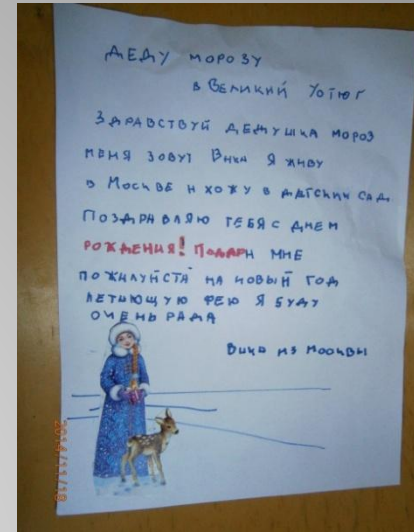 ДЕДУ МОРОЗУ
в ВЕЛИКИЙ УСТЮГ
ЗДРАВСТВУЙ ДЕДУШКА МОРОЗ
МЕНЯ ЗОВУТ ВИКА Я ЖИВУ
В МОСКВЕ И ХОЖУ В ДЕТСКИЙ САД
ПОЗДРАВЛЯЮ ТЕБЯ С ДНЕМ
РОЖДЕНИЯ! ПОДАРИ МНЕ
ПОЖАЛУЙСТА НА НОВЫЙ ГОД
ЛЕТАЮЩУЮ ФЕЮ Я БУДУ
ОЧЕНЬ РАДА
ВИКА ИЗ МОСКВЫ
2014/11/18